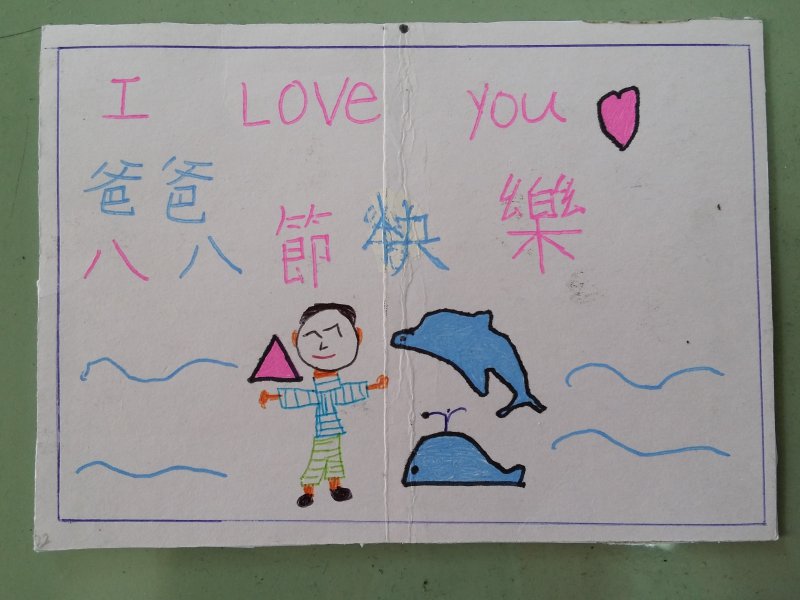 I Love you
爸爸
八八節快樂